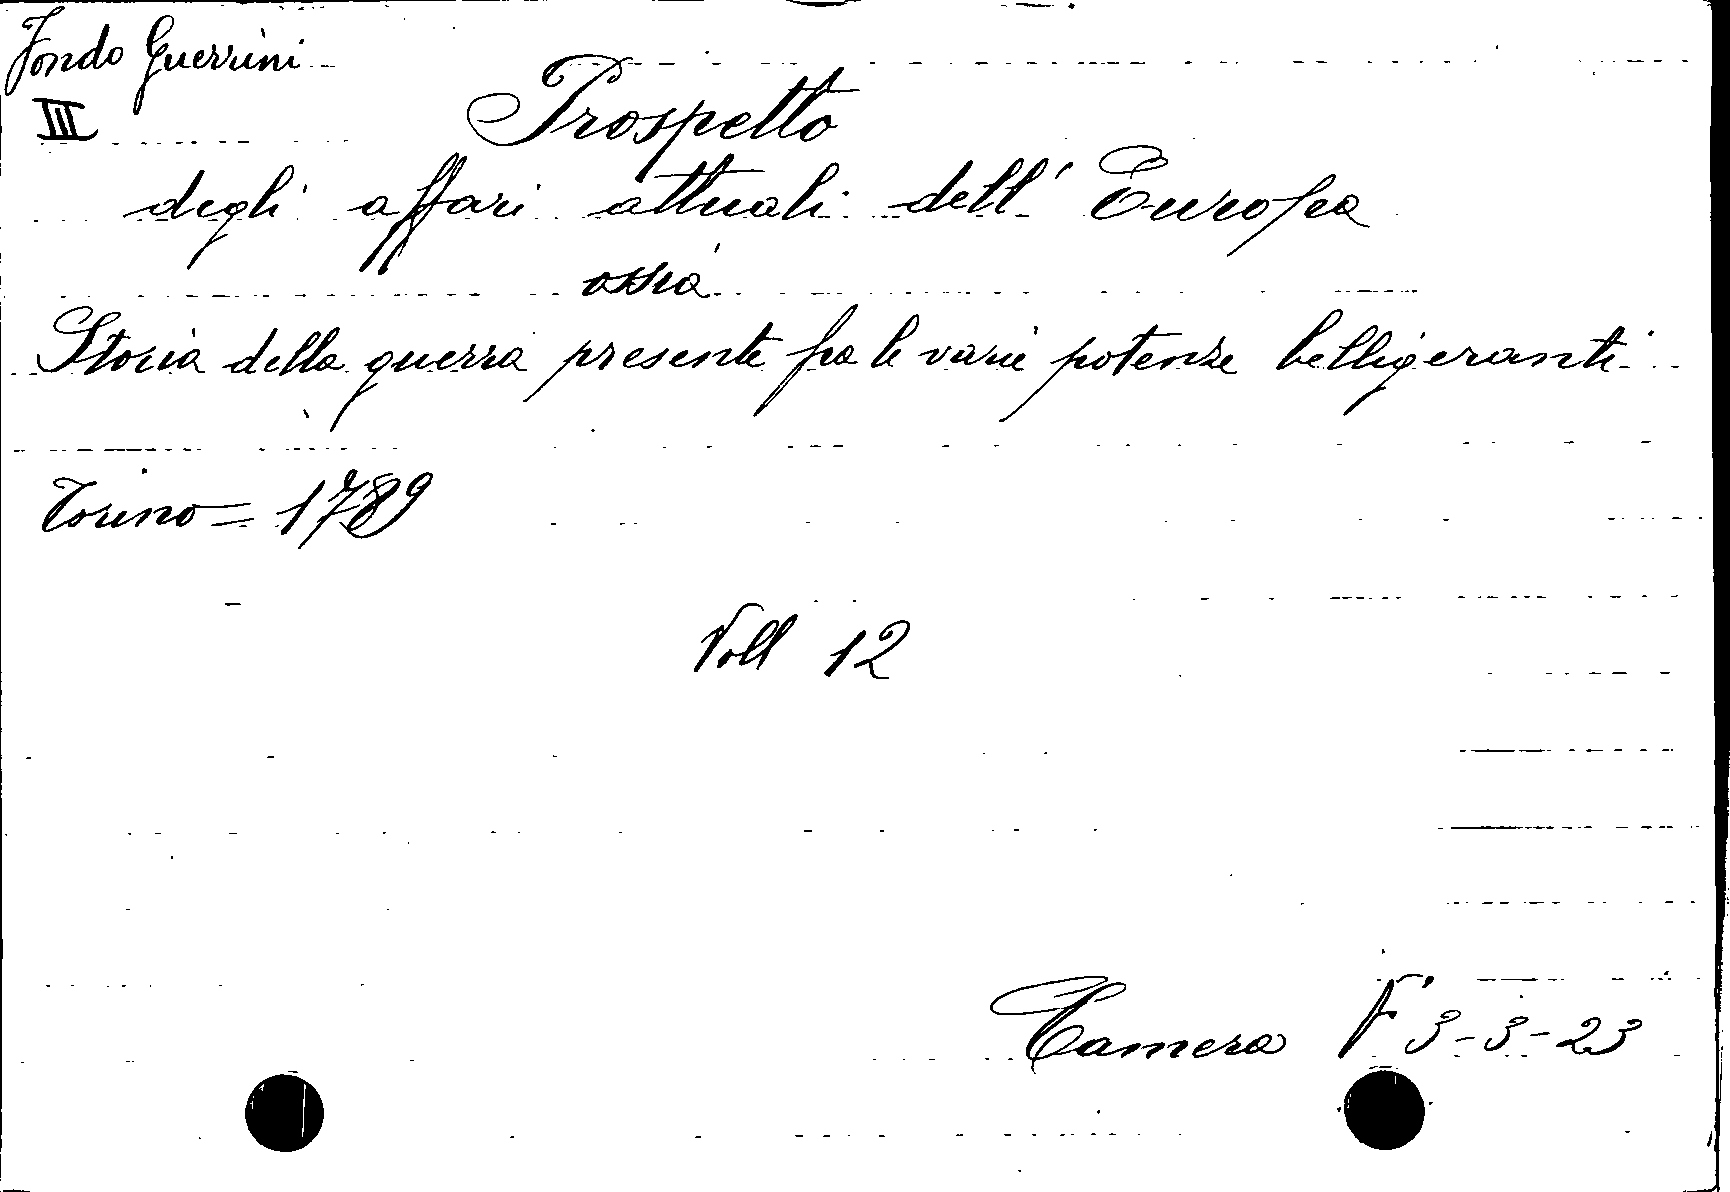 Fondo Guerrini
III
Prospetto
degli affari attuali dell' Europa
ossia
Storia della guerra presente fra le varie potenze belligeranti
Torino = 1789
Voll 12
Camera F 3-3-23